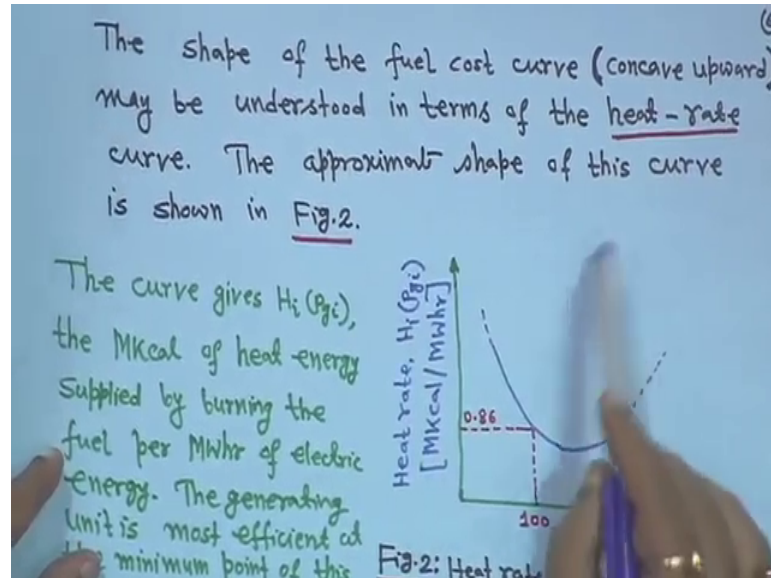 The shape of the fuel cost curve (concave upward)
may be understood in terms of the heat-rate
curve. The approximat shape of this curve
is shown in Fig.2.
The curve gives Hi (Pgi),
the MKcal of heat energy
supplied by burning the
fuel per MWhr of electric
energy. The generating
unit is most efficient at
the minimum point of this
Heat rate, Hi (Pgi)
[MKcal/MWhr]
0.86
100
Fig.2: Heat rate